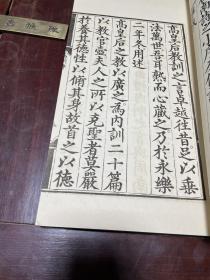 高皇后教訓之言卓越往昔足以垂
法萬世吾耳熟而心藏之乃於永樂
二年冬用述
高皇后之教以廣之為内訓二十篇
以教宮壼夫人之所以克聖者莫嚴
於養其德性以脩其身故首之以德